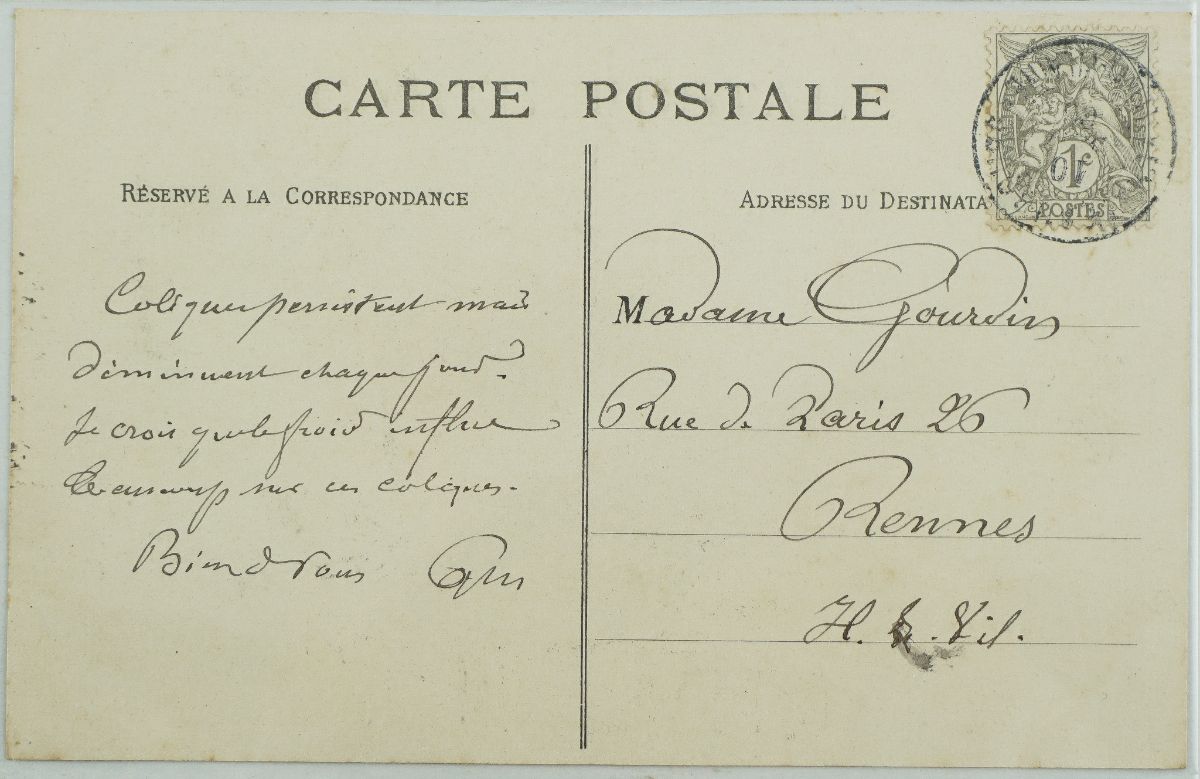 CARTE POSTALE
RÉSERVÉ A LA CORRESPONDANCE
Coliques persistent mais
diminuent chaque jour.
Je crois que le froid influe
beaucoup sur ces coliques.
Bien à vous
ADRESSE DU DESTINATA
1c
POSTES
10
Madame Gourdin
Rue de Paris 26
Rennes
Il. & Vil.